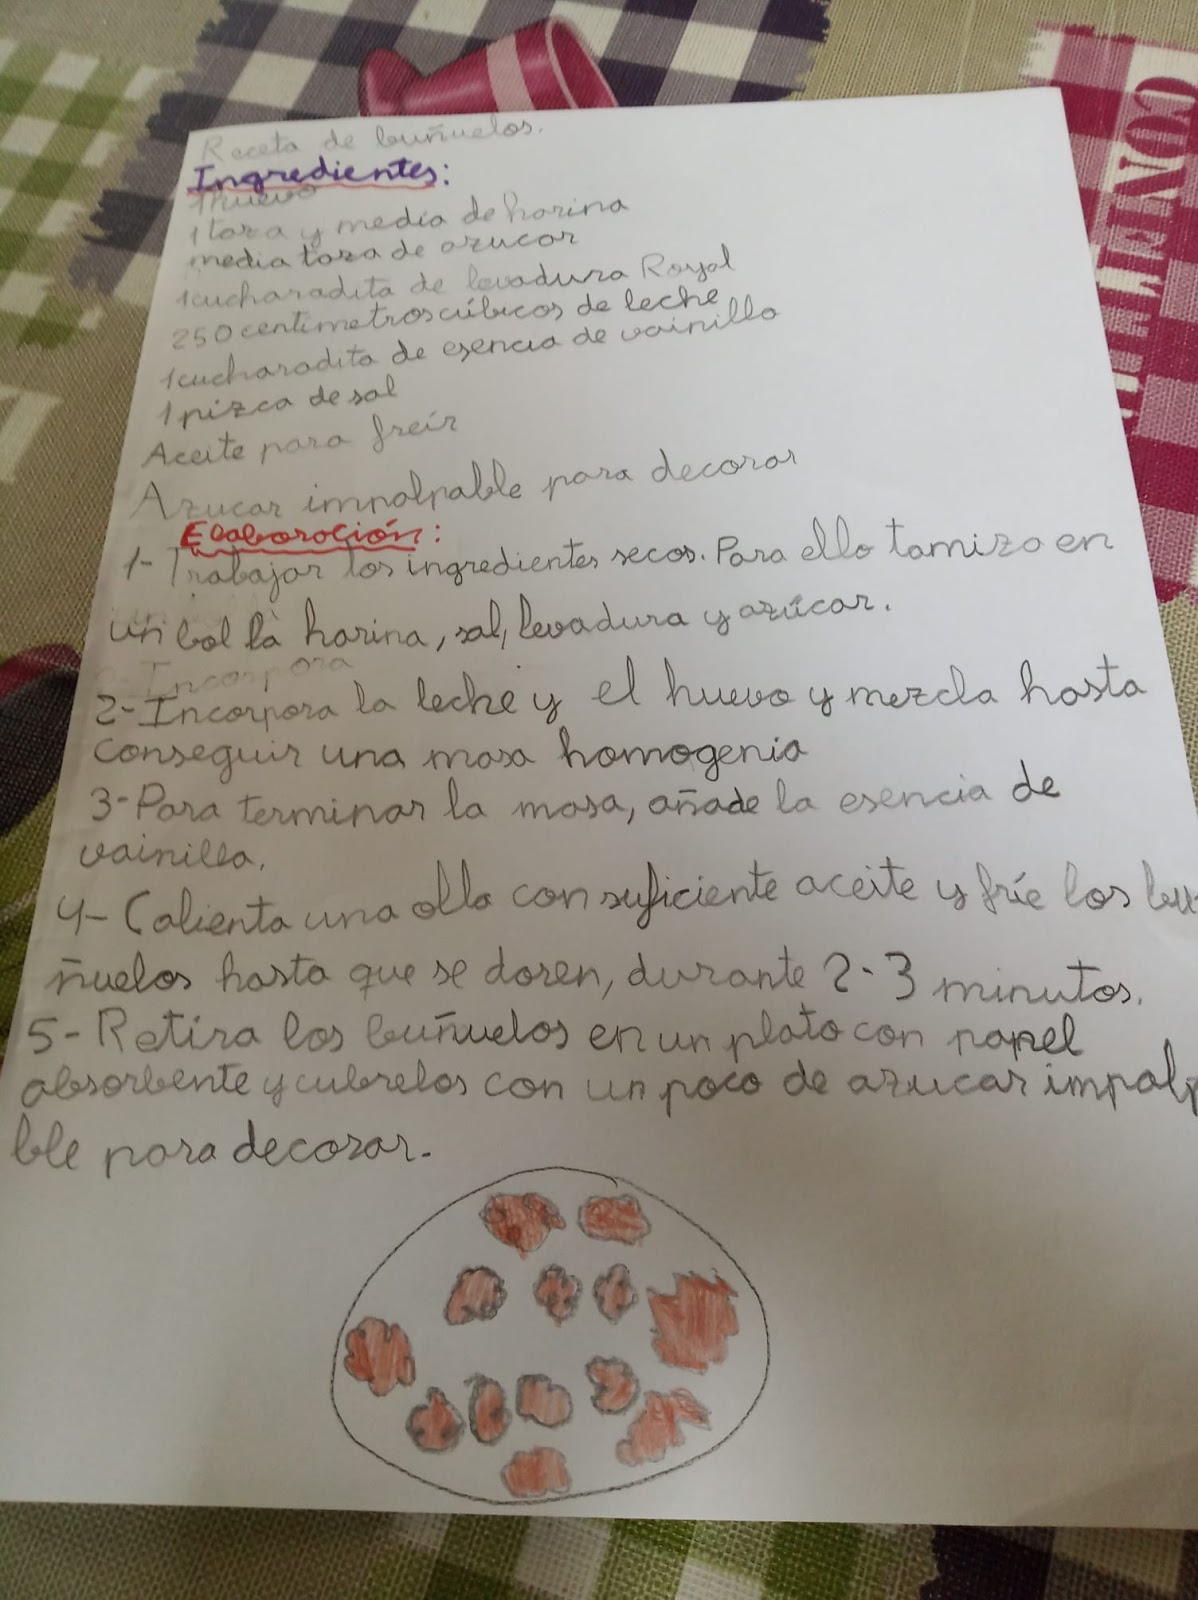 Receta de buñuelos.
Ingredientes:
1huevo
1taza y media de harina
media taza de azucar
1cucharadita de levadura Royal
250 centimetros cúbicos de leche
1cucharadita de esencia de vainilla
1 pizca de sal
Aceite para freír
Azucar impalpable para decorar
Elaboración:
1- Trabajar los ingredientes secos. Para ello tamiza en
un bol la harina, sal, levadura y azúcar.
Incorpora
2-Incorpora la leche y el huevo y mezcla hasta
conseguir una masa homogenia
3-Para terminar la masa, añade la esencia de
vainilla.
4- Calienta una olla con suficiente aceite y fríe los bu-
ñuelos hasta que se doren, durante 2-3 minutos.
5-Retira los buñuelos en un plato con papel
absorbente y cubrelos con un poco de azucar impalp
ble para decorar.